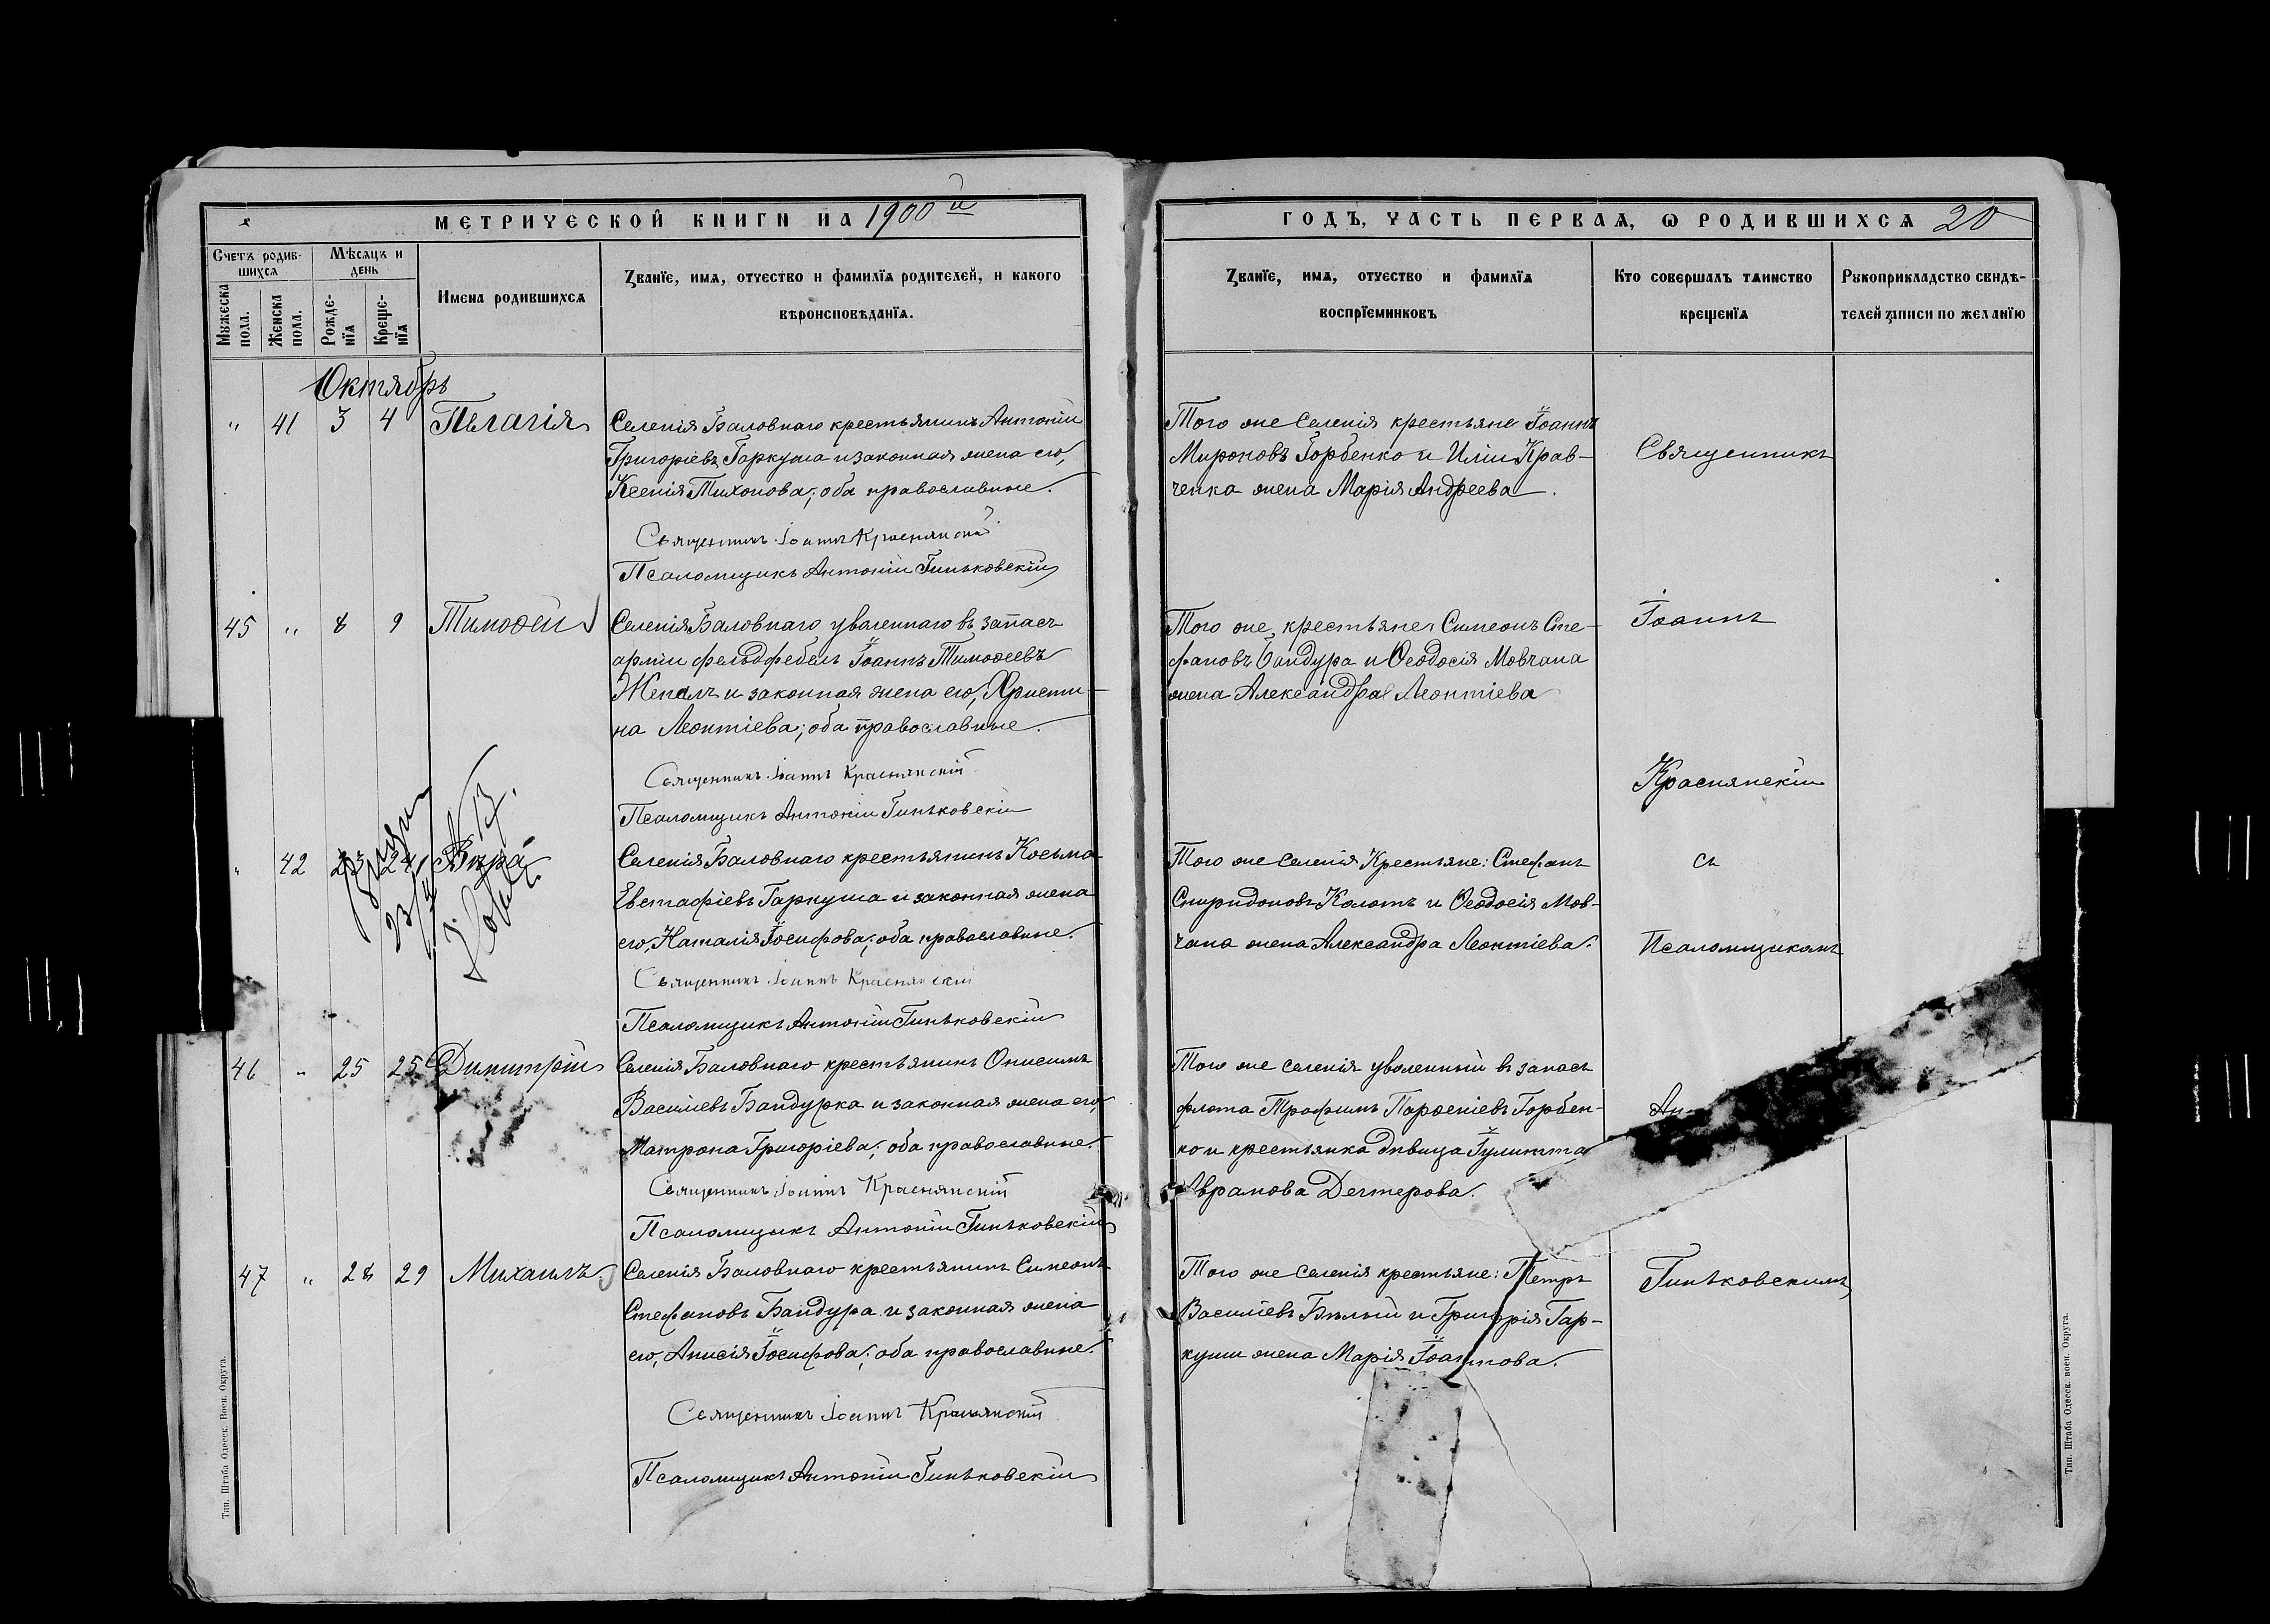 МЕТРИЧЕСКОЙ КНИГИ НА 1900й
Счетъ родив-
шихся
Мѣсяцъ и
день
Мужеска
пола.
Женска
пола.
Рожде-
нїя
Креще-
нїя
Имена родившихся
Званїе, имя, отчество и фамилїя родителей, и какого
вѣроисповѣданїя.
Октябрь
" 41 3 4 Пелагія
Селенія Баловнаго крестьянинъ Антоній
Григоріевъ Гаркуша и законная жена его,
Ксенія Тихонова; оба православные.
Священникъ Іоаннъ Краснянскій
Псаломщикъ Антоній Гиньковскій
45 " 8 9 Тимоѳей
Селенія Баловнаго уволеннаго въ запасъ
арміи фельдфебель Іоаннъ Тимоѳеевъ
и законная жена его, Христи-
на Леонтіева; оба православные.
Священникъ Іоаннъ Краснянскій
Псаломщикъ Антоній Гиньковскій
" 42 23 24 Вѣра
Селенія Баловнаго крестьянинъ Косьма
Евстафіевъ Гаркуша и законная жена
его, Наталія Іосифова; оба православные.
Священникъ Іоаннъ Краснянскій
Псаломщикъ Антоній Гиньковскій
46 " 25 25 Димитрій
Селенія Баловнаго крестьянинъ Онисимъ
Василіевъ Бандурка и законная жена его,
Матрона Григоріева; оба православные.
Священникъ Іоаннъ Краснянскій
Псаломщикъ Антоній Гиньковскій
47 " 28 29 Михаилъ
Селенія Баловнаго крестьянинъ Симеонъ
Стефановъ Бандура и законная жена
его, Анисія Іосифова; оба православные.
Священникъ Іоаннъ Краснянскій
Псаломщикъ Антоній Гиньковскій
Тип. Штаба Одесск. Воен. Округа.
ГОДЪ, ЧАСТЬ ПЕРВАЯ, Ѡ РОДИВШИХСЯ 20
Званїе, имя, отчество и фамилїя
воспрїемниковъ
Кто совершалъ таинство
крещенїя
Рукоприкладство свидѣ-
телей записи по желанїю
Того же селенія крестьяне Іоаннъ
Мироновъ Горбенко и Иліи Крав-
ченка жена Марія Андреева.
Того же, крестьяне Симеонъ Сте-
фановъ Бандура и Ѳеодосія Мовчана
жена Александра Леонтіева
Того же селенія Крестьяне: Стефанъ
Спиридоновъ Колотъ и Ѳеодосія Мов-
чана жена Александра Леонтіева.
Того же селенія уволенный въ запасъ
флота Трофимъ Парѳеніевъ Горбен-
ко и крестьянка дѣвица Іулитта
Аврамова Дегтерова.
Того же селенія крестьяне: Петръ
Василіевъ Бѣлый и Григорія Гар-
куши жена Марія Іоаннова.
Священникъ
Іоаннъ
Краснянскій
съ
Псаломщикомъ
Ан
Гиньковскимъ
Тип. Штаба Одесск. воен. Округа.